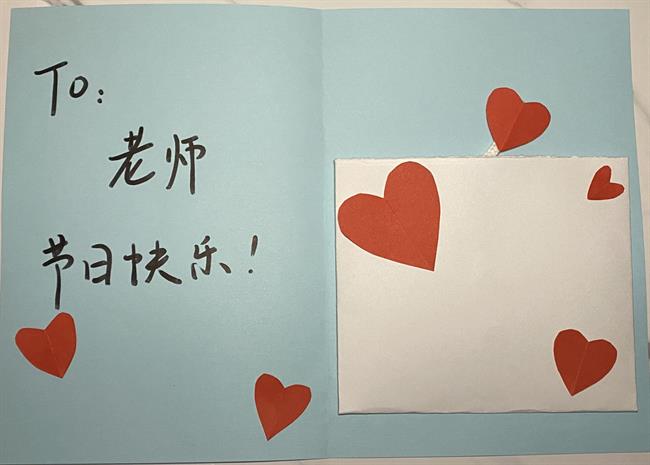 To:
老师
节日快乐!